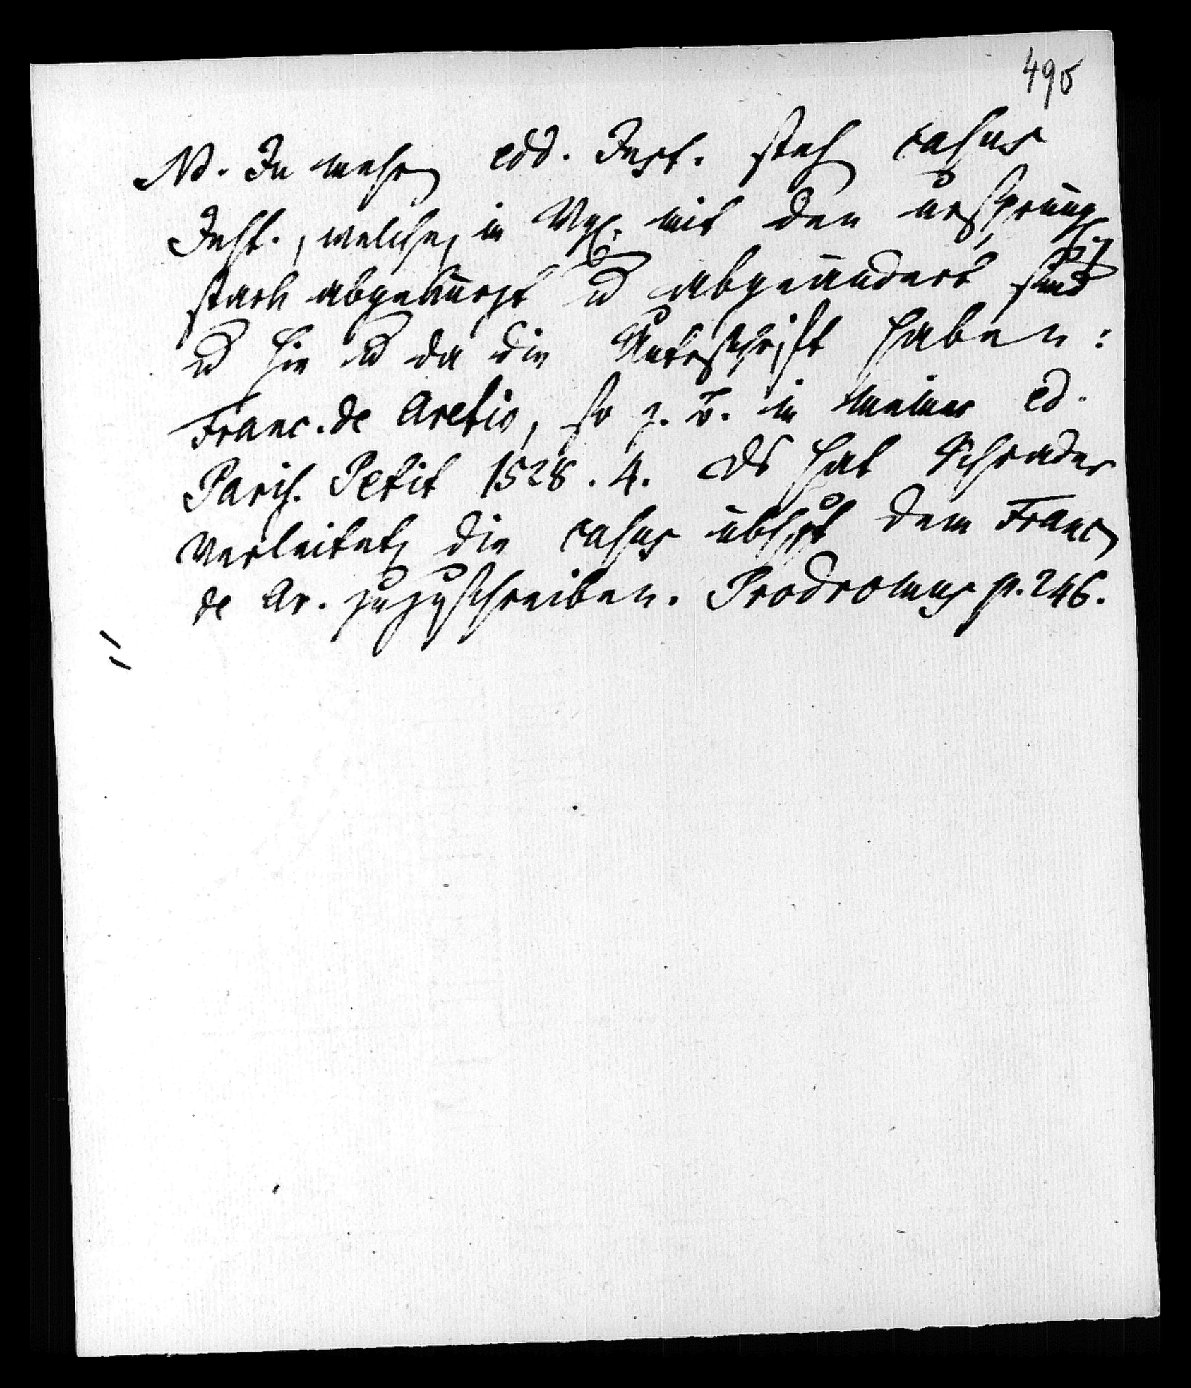 495
NB. In mehren edd. Inst. stehen casus
Inst., welche, in Vgl. mit den ursprüngl.
stark abgekürzt u abgeändert sind
u hie u da die Unterschrift haben:
Franc. de Aretio, so z. B. in meiner ed.
Paris. Petit 1528. 4. Ds hat Schrader
verleitet, die casus übhpt dem Franc.
de Ar. zuzuschreiben. Prodromus p. 246.